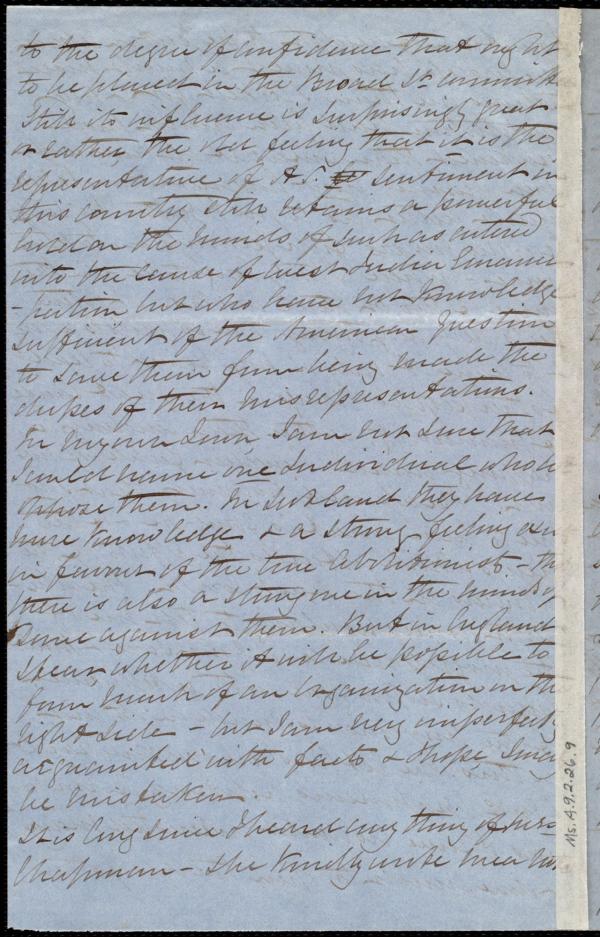 to the degree of confidence that ought
to be placed in the Broad St. committ
Still its influence is surprisingly great
or rather the old feeling that it is the
representative of A. S. sentiment in
this country still retains a powerful
hold on the minds of such as entered
into the cause of West India Emanci
-pation but who have not knowledge
sufficient of the American question
to save them from being made the
dupes of their misrepresentations.
In my own town I am not sure that
I could name one individual who
oppose them. In Scotland they have
more knowledge & a strong feeling
in favour of the true Abolitionists - th
there is also a strong one in the minds of
some against them. But in England
I fear whether it will be possible to
form much of an organization on the
right side - but I am very imperfectly
acquainted with facts & I hope I may
be mistaken
It is long since I heard any thing of Mrs
Chapman - She kindly wrote me a
Ms. A.9.2.26.9